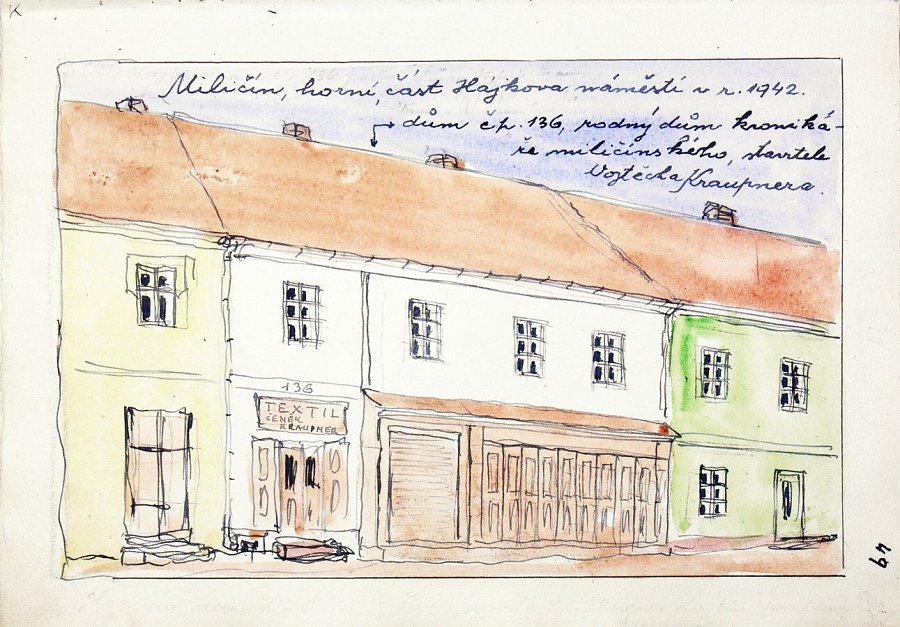 K
Miličín, horní část Hájkova náměstí v r. 1942.
dům čp. 136, rodný dům kroniká-
ře miličínského, stavitele
Vojtěcha Kraupnera.
136
TEXTIL
ČENĚK
KRAUPNER
49